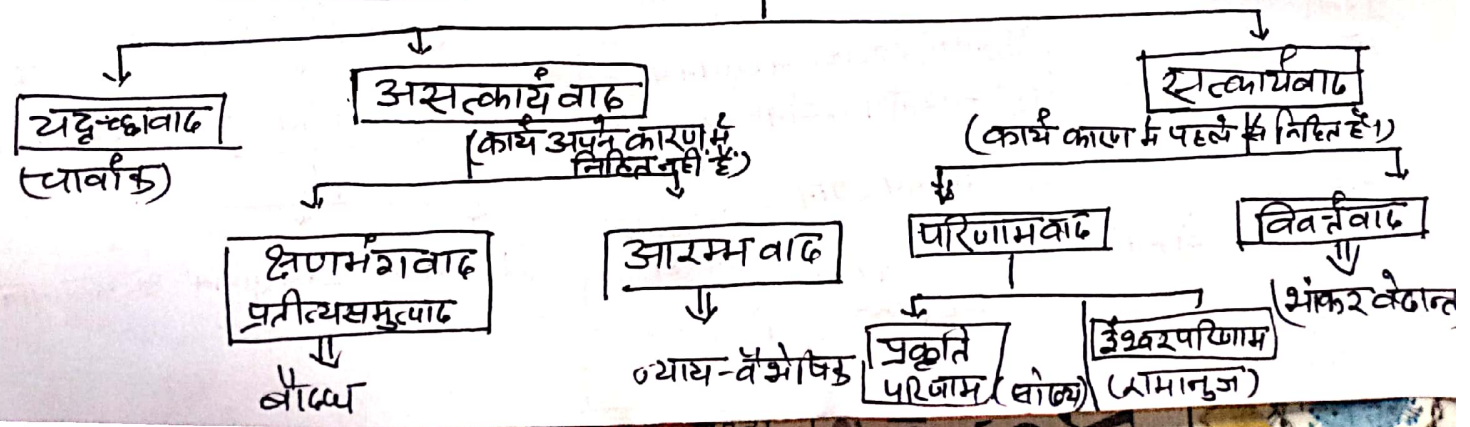 यदृच्छावाद
(चार्वाक)
असत्कार्यवाद
(कार्य अपने कारण में
निहित नहीं है)
सत्कार्यवाद
(कार्य कारण में पहले से निहित है।)
क्षणभंगवाद
प्रतीत्यसमुत्पाद
बौद्ध
आरम्भवाद
न्याय-वैशेषिक
परिणामवाद
प्रकृति
परिणाम (सांख्य)
ईश्वरपरिणाम
(रामानुज)
विवर्तवाद
(शांकर वेदान्त